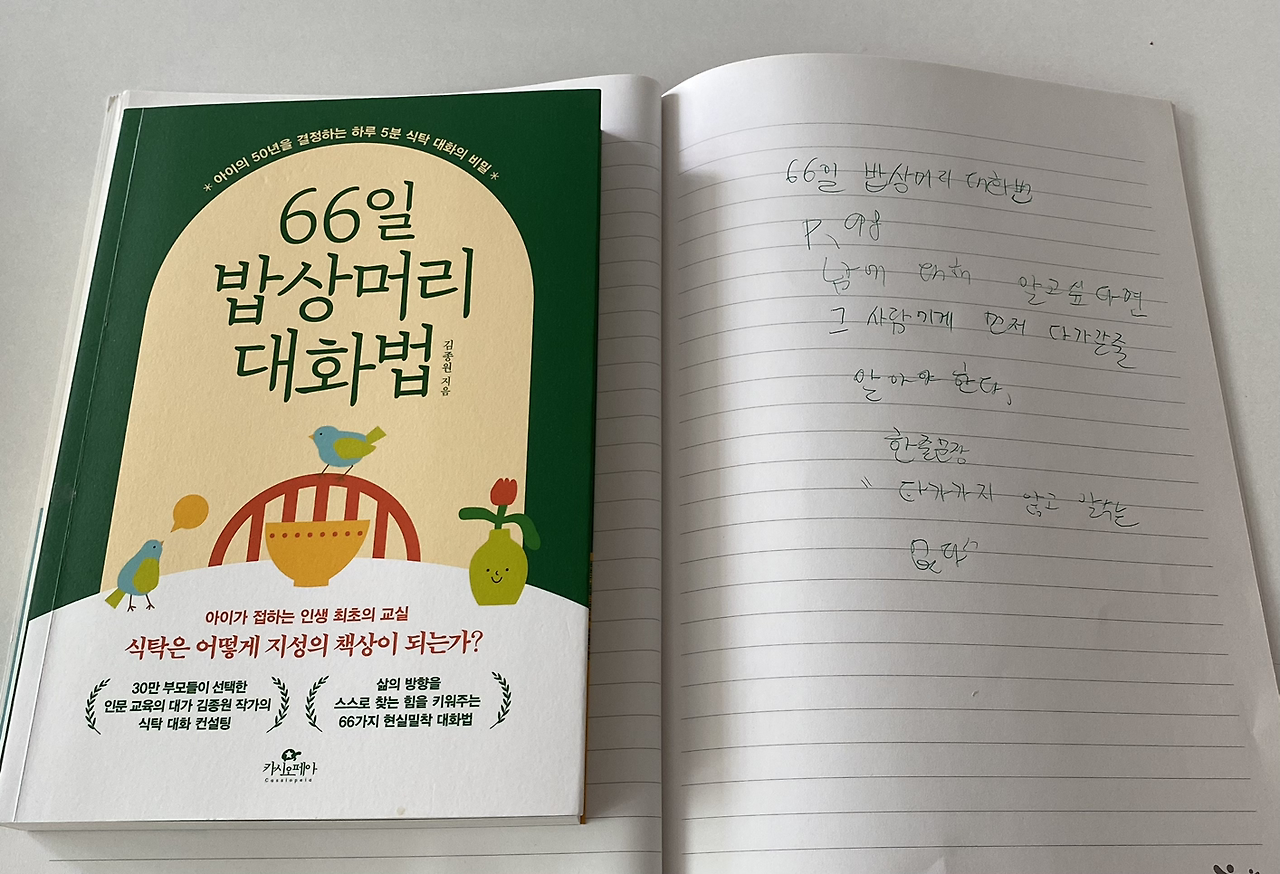 *아이의 50년을 결정하는 하루 5분 식탁 대화의 비밀*
66일
밥상머리
대화법
김종원 지음
아이가 접하는 인생 최초의 교실
식탁은 어떻게 지성의 책상이 되는가?
30만 부모들이 선택한
인문 교육의 대가 김종원 작가의
식탁 대화 컨설팅
삶의 방향을
스스로 찾는 힘을 키워주는
66가지 현실밀착 대화법
카시오페아
Cassiopeia
66일 밥상머리 대화법
P.
남에 대해 알고싶다면
그 사람에게 먼저 다가갈줄
알아야 한다,
한줄문장
" 다가가지 않고 알수는
없다"